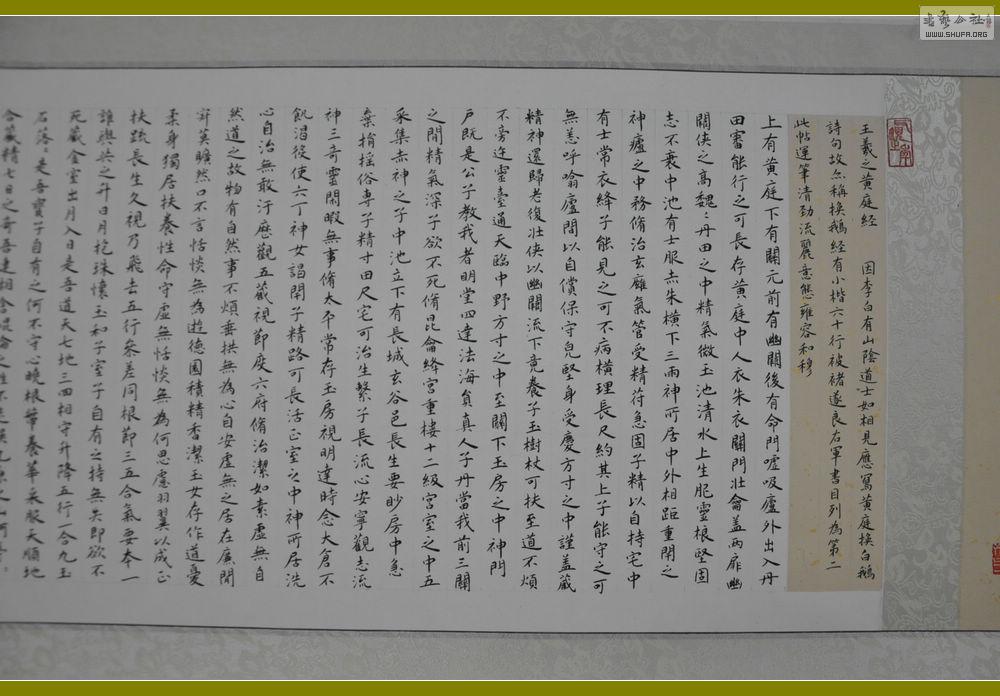 书艺公社
WWW.SHUFA.ORG
王羲之黄庭经　因李白有山陰道士如相見應寫黄庭换白鵝
詩句故亦稱换鵝经有小楷六十行被褚遂良右軍書目列為第二
此帖運筆清勁流麗意態雍容和穆
上有黄庭下有關元前有幽關後有命門噓吸廬外出入丹
田審能行之可長存黄庭中人衣朱衣關門壮籥盖兩扉幽
關俠之高魏〻丹田之中精氣微玉池清水上生肥靈根堅固
志不衰中池有士服赤朱横下三雨神所居中外相距重閉之
神廬之中務脩治玄廱氣管受精苻急固子精以自持宅中
有士常衣絳子能見之可不病横理長尺約其上子能守之可
無恙呼噏廬間以自償保守皃堅身受慶方寸之中謹盖藏
精神還歸老復壮俠以幽關流下竟養子玉樹杖可扶至道不煩
不旁迕靈臺通天臨中野方寸之中至關下玉房之中神門
戶既是公子教我者明堂四達法海員真人子丹當我前三關
之間精氣深子欲不死脩昆侖絳宫重樓十二级宫室之中五
采集赤神之子中池立下有長城玄谷邑長生要眇房中急
棄捐摇俗専子精寸田尺宅可治生繫子長流心安寧觀志流
神三奇靈閑暇無事脩太平常存玉房視明達時念大倉不
飢渴役使六丁神女謁閉子精路可長活正室之中神所居洗
心自治無敢汙歷觀五藏視節度六府脩治潔如素虛無自
然道之故物有自然事不煩垂拱無為心自安虛無之居在廉間
寂莫曠然口不言恬惔無為遊德園積精香潔玉女存作道憂
柔身獨居扶養性命守虛無恬惔無為何思慮羽翼以成正
扶疏長生久視乃飛去五行參差同根節三五合氣要本一
誰與共之升日月抱珠懷玉和子室子自有之持無失即欲不
死藏金室出月入日是吾道天七地三四相守升降五行一合九玉
石落〻是吾寶子自有之何不守心曉根蒂養華采服天順地
合藏精七日之奇吾連相合